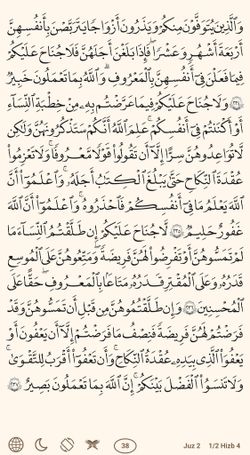 وَالَّذِينَ يُتَوَفَّوْنَ مِنكُمْ وَيَذَرُونَ أَزْوَاجًا يَتَرَبَّصْنَ بِأَنفُسِهِنَّ
أَرْبَعَةَ أَشْهُرٍ وَعَشْرًا فَإِذَا بَلَغْنَ أَجَلَهُنَّ فَلَا جُنَاحَ عَلَيْكُمْ
فِيمَا فَعَلْنَ فِي أَنفُسِهِنَّ بِالْمَعْرُوفِ وَاللَّهُ بِمَا تَعْمَلُونَ خَبِيرٌ
٢٣٤ وَلَا جُنَاحَ عَلَيْكُمْ فِيمَا عَرَّضْتُم بِهِ مِنْ خِطْبَةِ النِّسَاءِ
أَوْ أَكْنَنتُمْ فِي أَنفُسِكُمْ عَلِمَ اللَّهُ أَنَّكُمْ سَتَذْكُرُونَهُنَّ وَلَٰكِن
لَّا تُوَاعِدُوهُنَّ سِرًّا إِلَّا أَن تَقُولُوا قَوْلًا مَّعْرُوفًا وَلَا تَعْزِمُوا
عُقْدَةَ النِّكَاحِ حَتَّىٰ يَبْلُغَ الْكِتَابُ أَجَلَهُ وَاعْلَمُوا أَنَّ اللَّهَ
يَعْلَمُ مَا فِي أَنفُسِكُمْ فَاحْذَرُوهُ وَاعْلَمُوا أَنَّ اللَّهَ
غَفُورٌ حَلِيمٌ ٢٣٥ لَّا جُنَاحَ عَلَيْكُمْ إِن طَلَّقْتُمُ النِّسَاءَ مَا
لَمْ تَمَسُّوهُنَّ أَوْ تَفْرِضُوا لَهُنَّ فَرِيضَةً وَمَتِّعُوهُنَّ عَلَى الْمُوسِعِ
قَدَرُهُ وَعَلَى الْمُقْتِرِ قَدَرُهُ مَتَاعًا بِالْمَعْرُوفِ حَقًّا عَلَى
الْمُحْسِنِينَ ٢٣٦ وَإِن طَلَّقْتُمُوهُنَّ مِن قَبْلِ أَن تَمَسُّوهُنَّ وَقَدْ
فَرَضْتُمْ لَهُنَّ فَرِيضَةً فَنِصْفُ مَا فَرَضْتُمْ إِلَّا أَن يَعْفُونَ أَوْ
يَعْفُوَ الَّذِي بِيَدِهِ عُقْدَةُ النِّكَاحِ وَأَن تَعْفُوا أَقْرَبُ لِلتَّقْوَىٰ
وَلَا تَنسَوُا الْفَضْلَ بَيْنَكُمْ إِنَّ اللَّهَ بِمَا تَعْمَلُونَ بَصِيرٌ ٢٣٧
38 Juz 2 1/2 Hizb 4